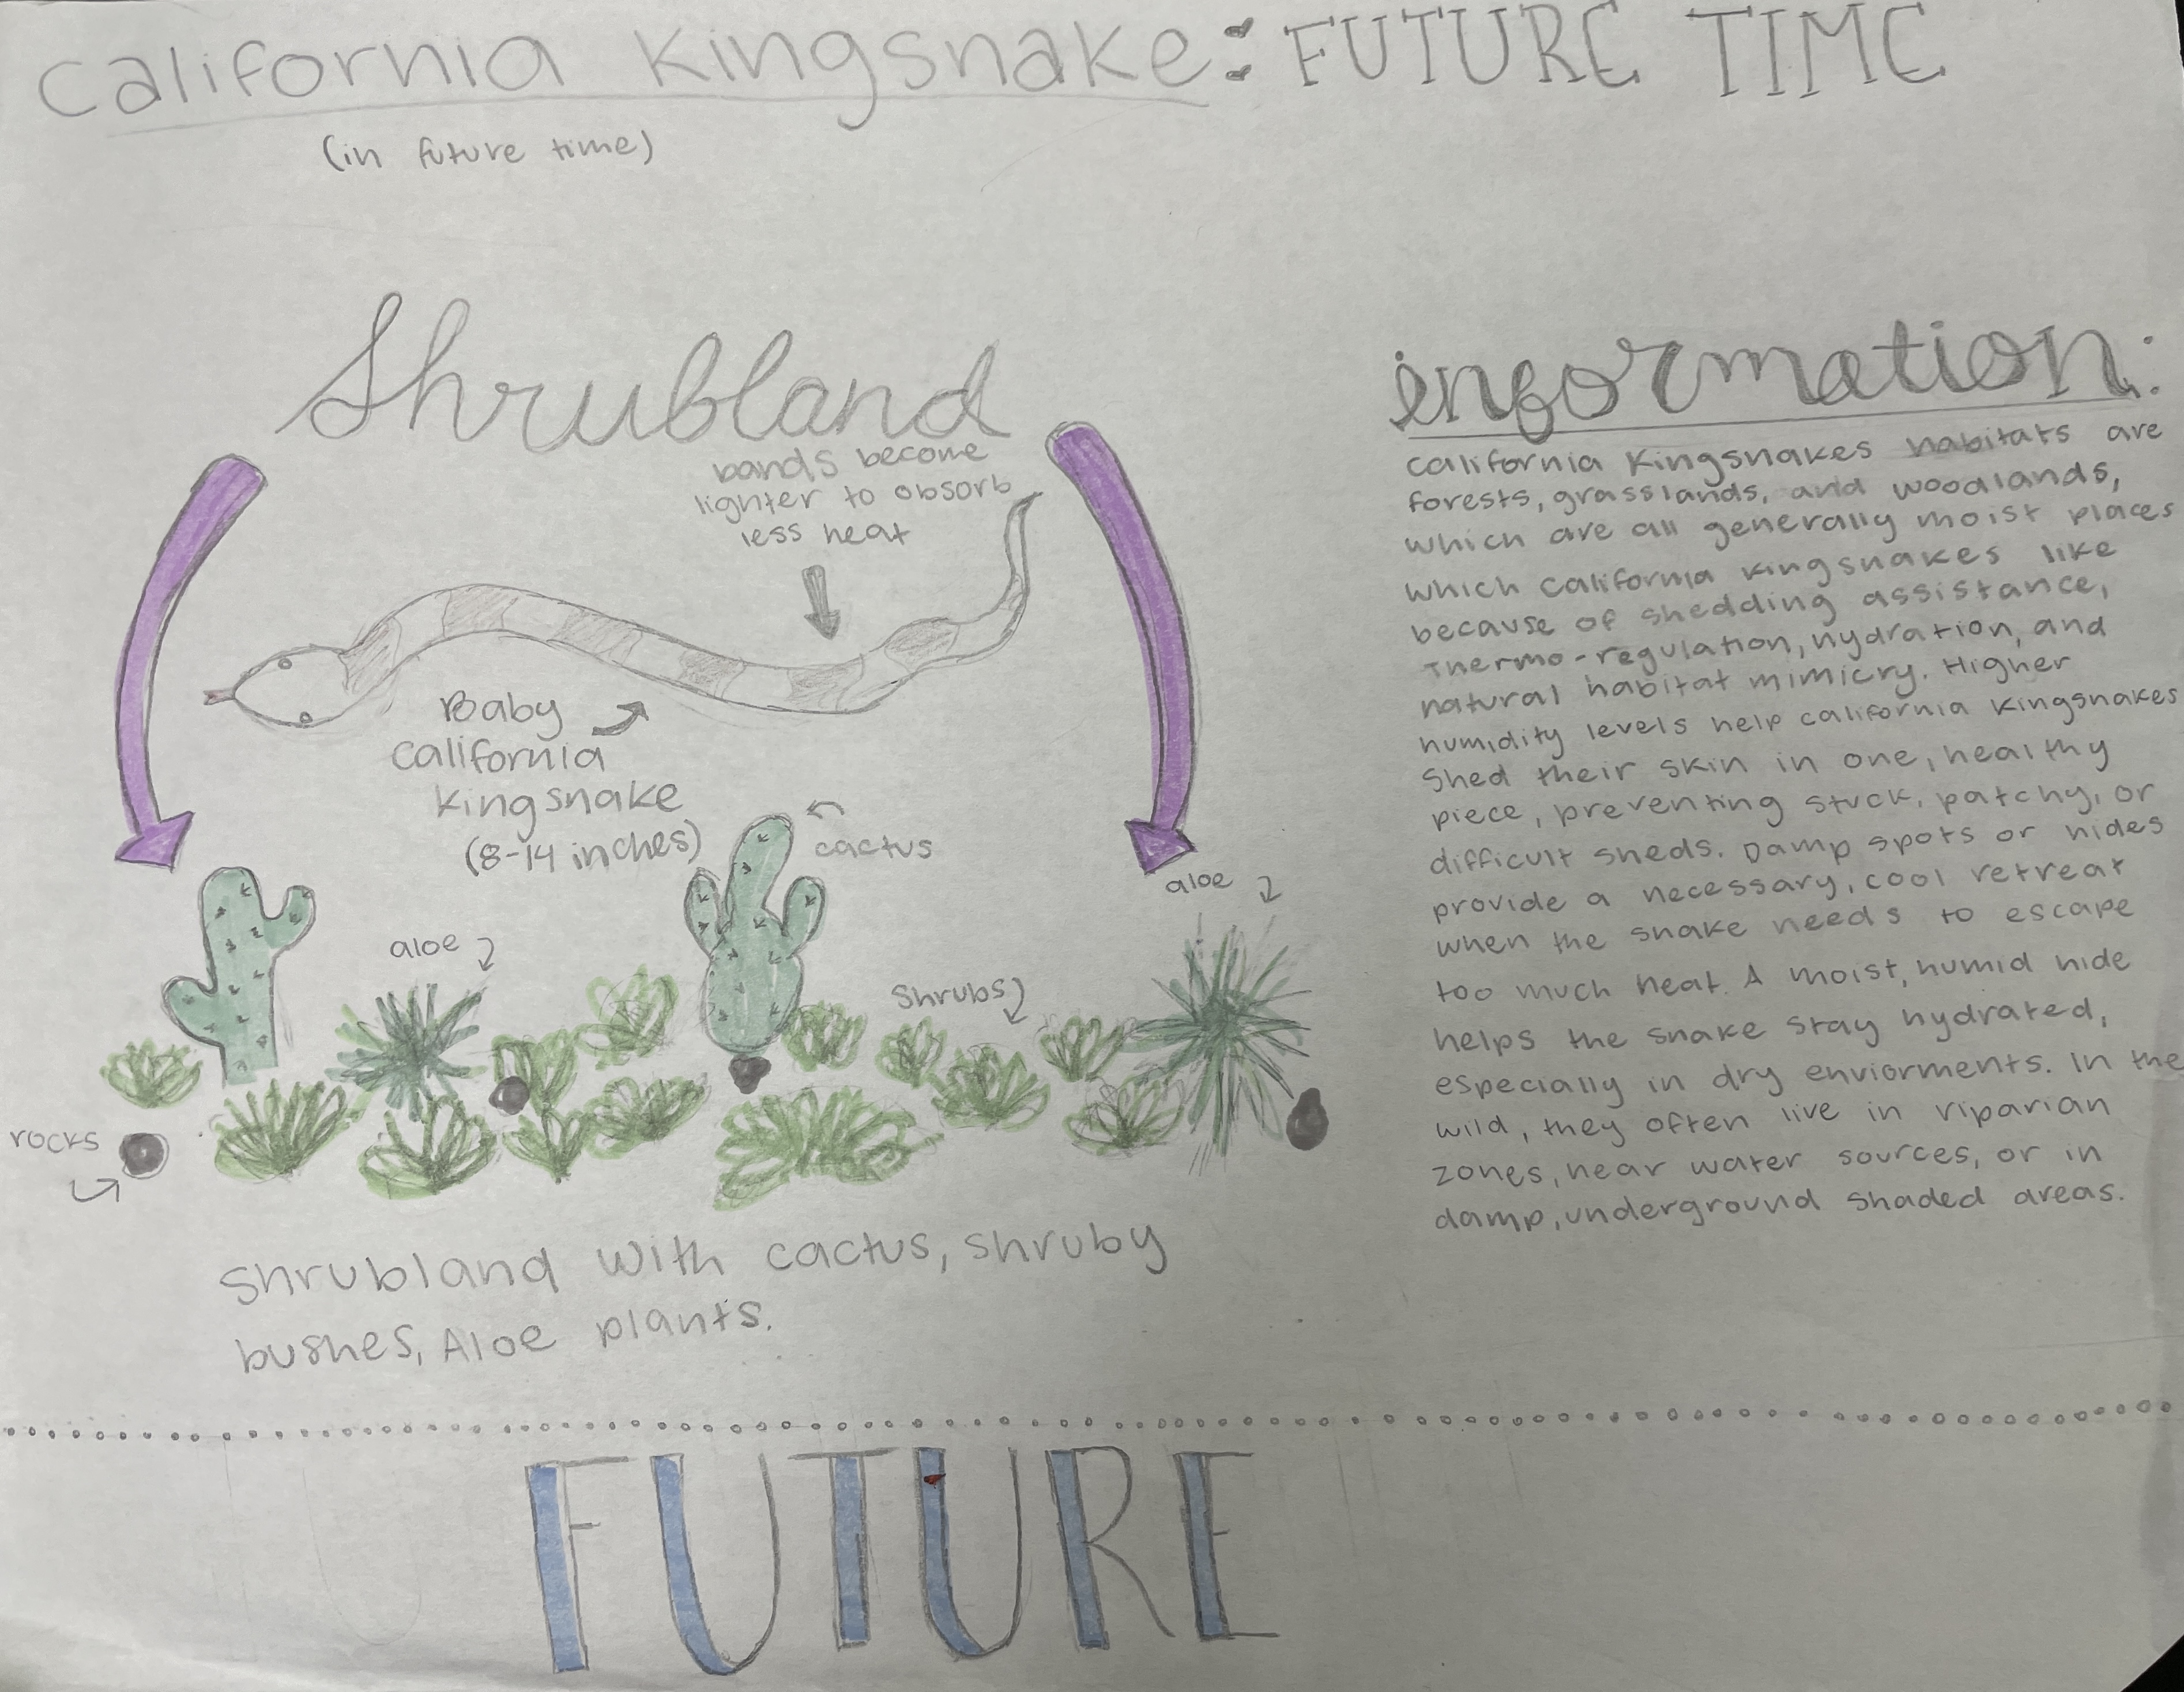 California Kingsnake: FUTURE TIME
(in future time)
Shrubland
bands become
lighter to absorb
less heat
Baby
California
Kingsnake
(8-14 inches)
cactus
aloe
aloe
shrubs
rocks
Shrubland with cactus, shruby
bushes, Aloe plants.
information:
California Kingsnakes habitats are
forests, grasslands, and woodlands,
which are all generally moist places
which California kingsnakes like
because of shedding assistance,
Thermo-regulation, hydration, and
natural habitat mimicry. Higher
humidity levels help california kingsnakes
shed their skin in one, healthy
piece, preventing stuck, patchy, or
difficult sheds. Damp spots or hides
provide a necessary, cool retreat
when the snake needs to escape
too much heat. A moist, humid hide
helps the snake stay hydrated,
especially in dry enviorments. In the
wild, they often live in riparian
zones, near water sources, or in
damp, underground shaded areas.
FUTURE